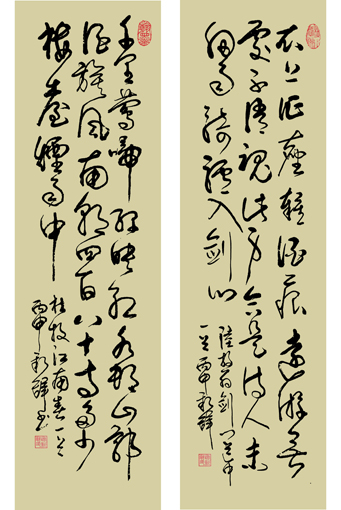 衣上征塵雜酒痕遠遊無
處不消魂此身合是詩人未
細雨騎驢入劍門
陸放翁劍門道中
一首丙申
千里鶯啼綠映紅水村山郭
酒旗風南朝四百八十寺多少
樓臺煙雨中
杜牧江南春一首
丙申書